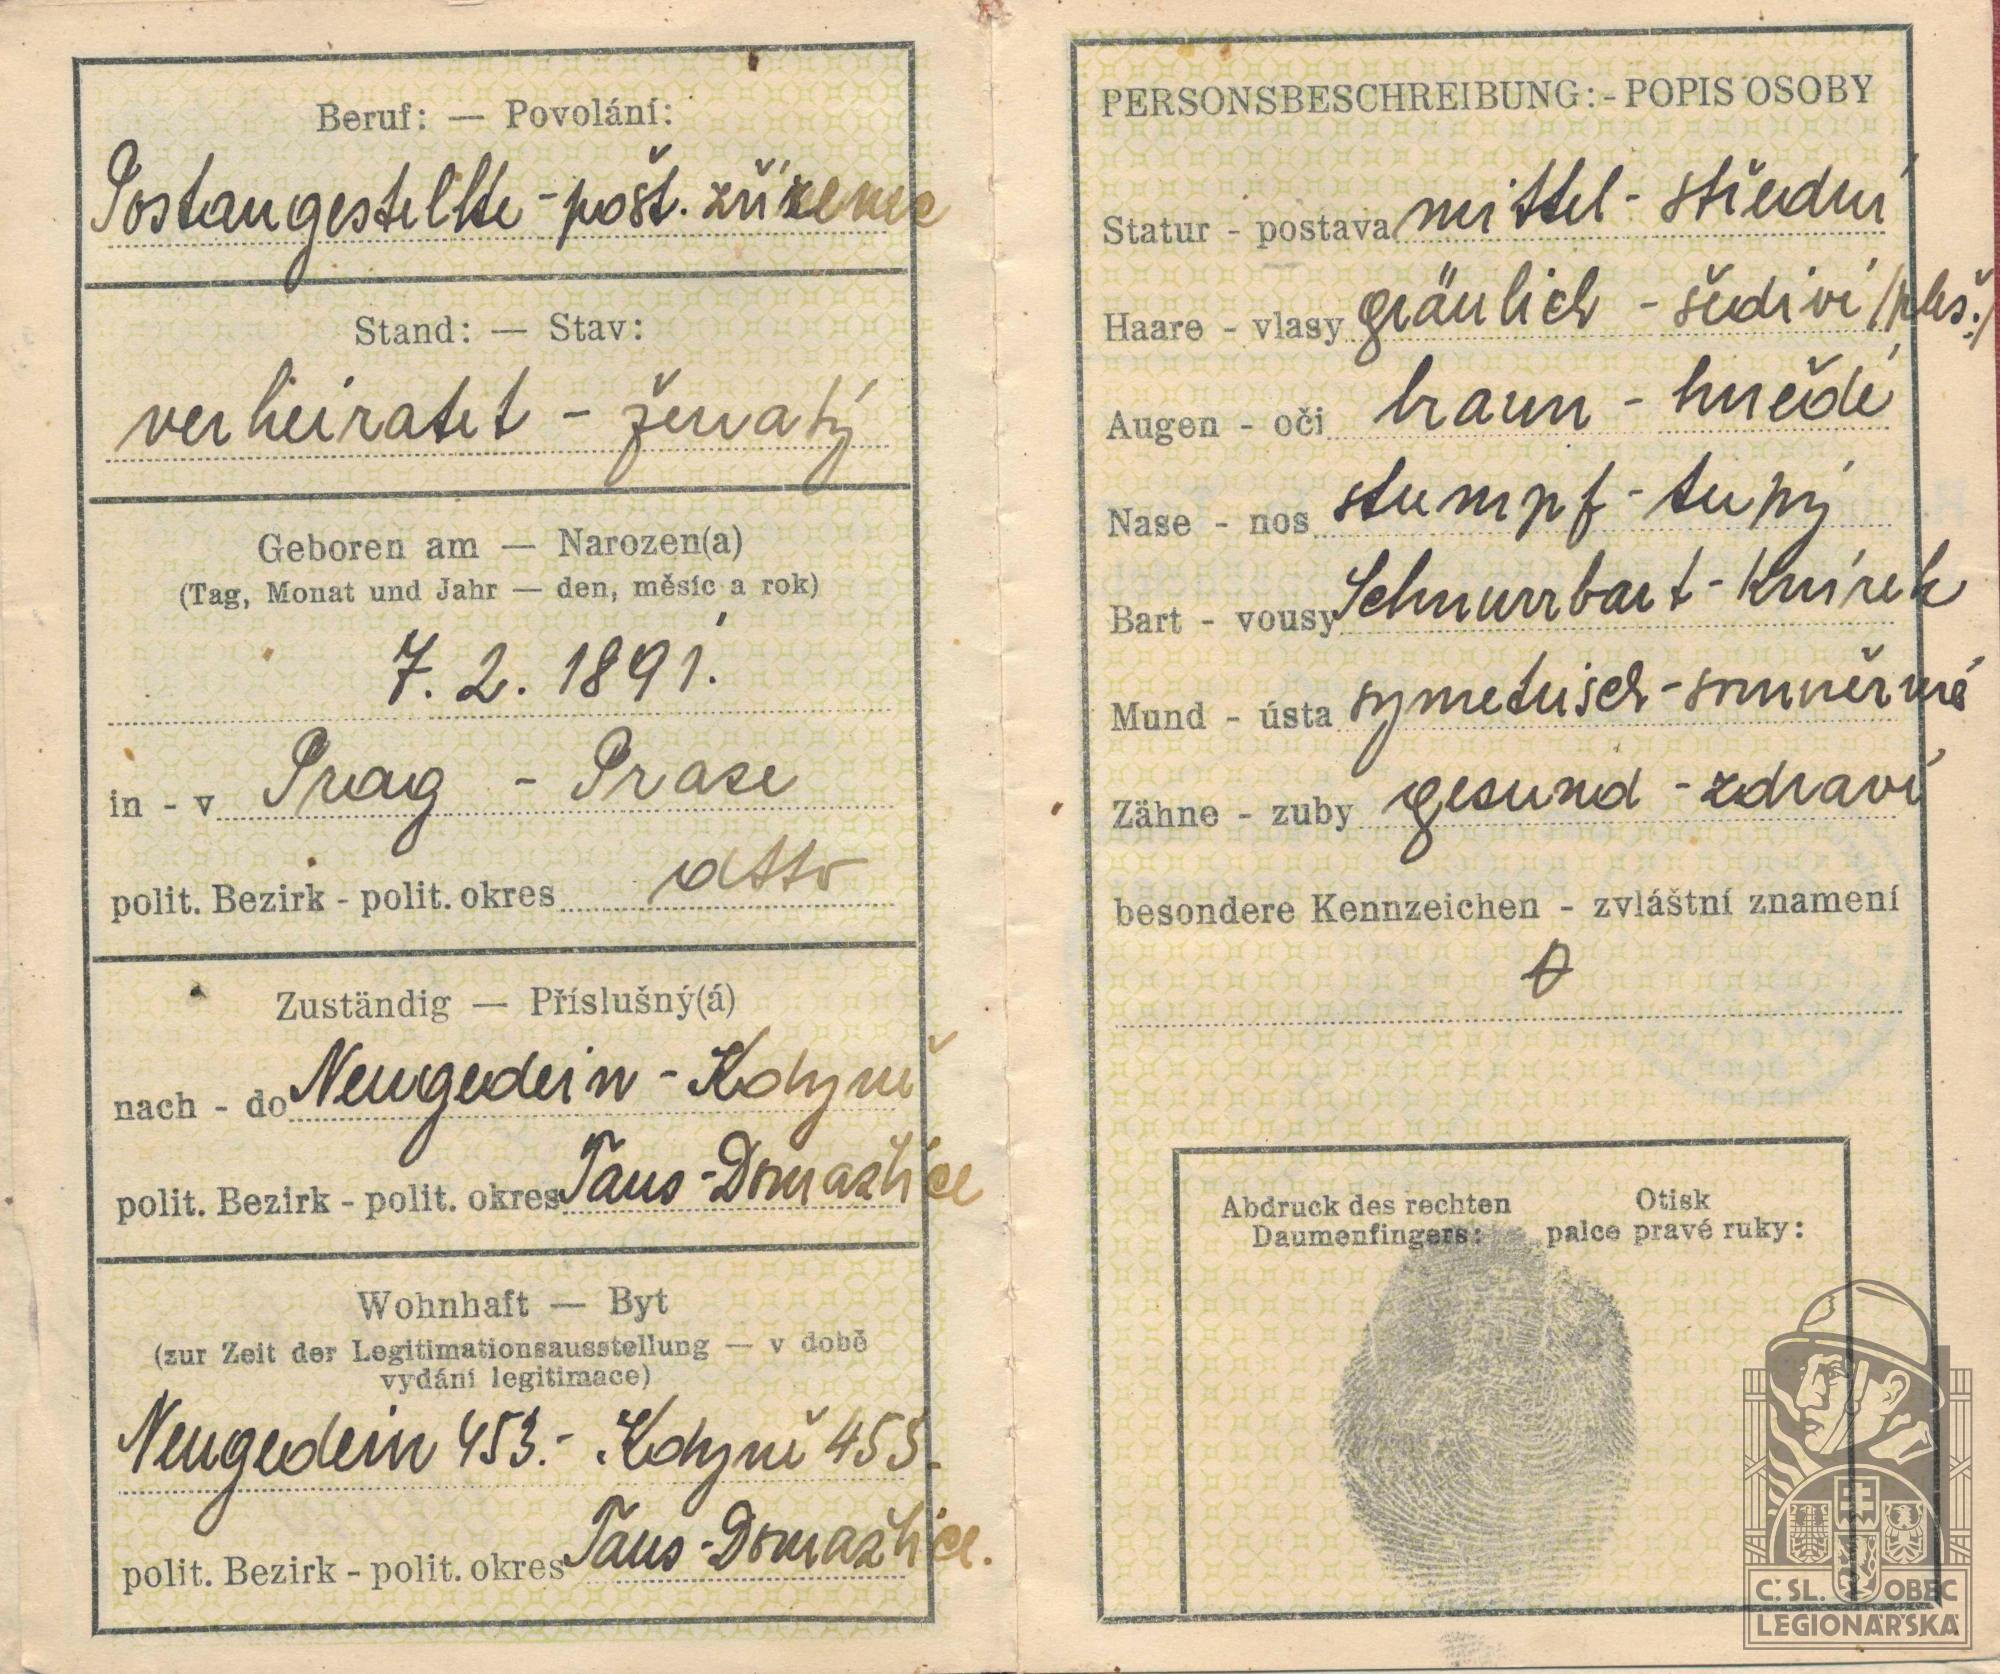 Beruf: — Povolání:
Postangestellte - pošt. zřízenec
Stand: — Stav:
verheiratet - ženatý
Geboren am — Narozen(a)
(Tag, Monat und Jahr — den, měsíc a rok)
7. 2. 1891.
in - v Prag - Praze
polit. Bezirk - polit. okres dtto
Zuständig — Příslušný(á)
nach - do Neugedein - Kdyně
polit. Bezirk - polit. okres Taus - Domažlice
Wohnhaft — Byt
(zur Zeit der Legitimationsausstellung — v době
vydání legitimace)
Neugedein 453. - Kdyně 453.
polit. Bezirk - polit. okres Taus - Domažlice.
PERSONSBESCHREIBUNG: - POPIS OSOBY
Statur - postava mittel - střední
Haare - vlasy gräulich - šediví /pleš./
Augen - oči braun - hnědé
Nase - nos stumpf - tupý
Bart - vousy Schnurrbart - Knírek
Mund - ústa symetrisch - souměrné
Zähne - zuby gesund - zdraví
besondere Kennzeichen - zvláštní znamení
Abdruck des rechten Daumenfingers:
Otisk palce pravé ruky:
Č. SL. OBEC
LEGIONÁŘSKÁ